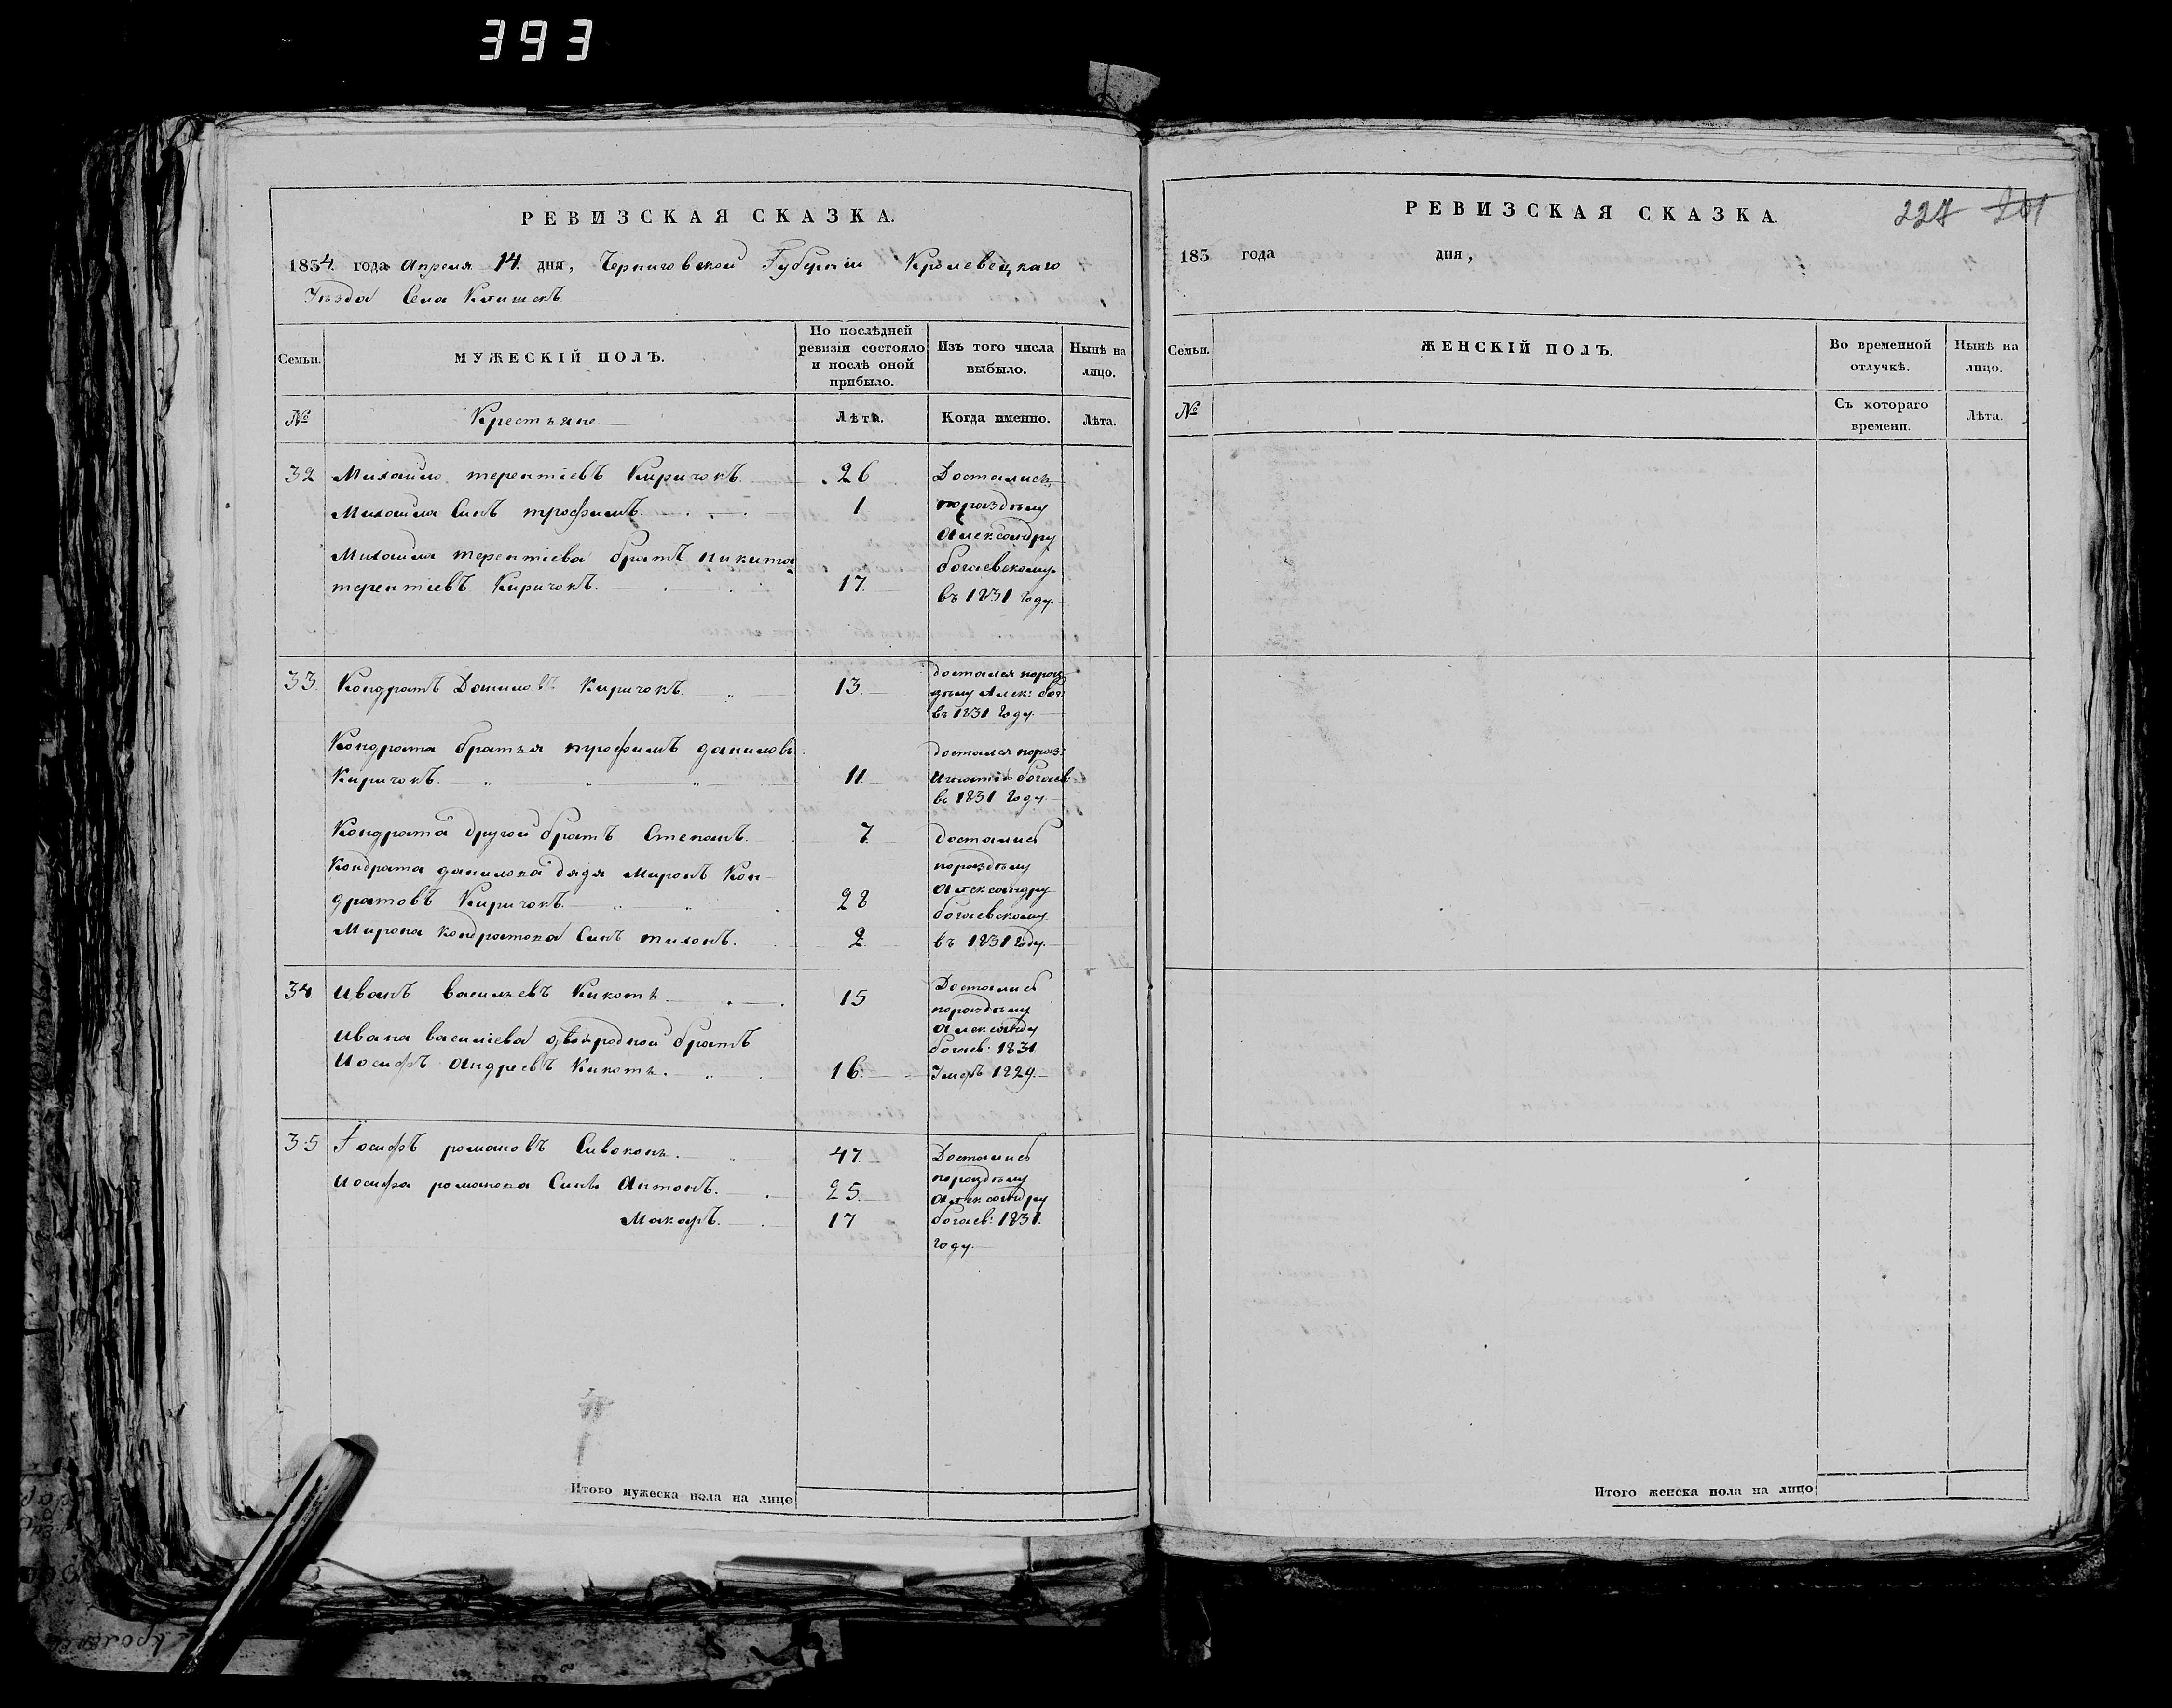 393
РЕВИЗСКАЯ СКАЗКА.
1834 года Апреля 14 дня, Черниговской Губернии Кролевецкаго
Уѣзда Села Клишекъ.
Семьи.
МУЖЕСКІЙ ПОЛЪ.
По послѣдней ревизіи состояло и послѣ оной прибыло.
Изъ того числа выбыло.
Нынѣ на лицо.
№
Крестьяне
Лѣта.
Когда именно.
Лѣта.
32 Михайло терентіевъ Киричокъ 26 Достались
Михайла Синъ трофимъ. 1 пораздѣлу
Александру
Михайла терентіева братъ никита
богаевскому
терентіевъ Киричокъ. 17.
въ 1831 году.
33. Кондратъ Даниловъ Киричокъ. 13. достался пораз
дѣлу Алек: бог:
въ 1831 году.
Кондрата братья трофимъ даниловъ
достался пораз:
Киричокъ. 11. Игнатію богаев:
въ 1831 году.
Кондрата другой братъ Степанъ. 7. Достались
Кондрата данилова дядя Миронъ Кон-
поразделу
Александру
дратовъ Киричокъ. 28
богаевскому
Мирона кондратова Синъ тихонъ. 2 въ 1831 году.
34. Иванъ васильевъ Кикоть. 15 Достались
поразделу
Ивана василіева двоюродной братъ
Александру
богаев: 1831.
Иосифъ Андреевъ Кикоть. 16. Умеръ 1829.
35 Іосифъ романовъ Сивоконь. 47. Достались
поразделу
Иосифа романова Сины Антонъ. 25. Александру
Макаръ. 17 богаев: 1831.
году.
Итого мужеска пола на лицо
РЕВИЗСКАЯ СКАЗКА.
227 201
183 года дня,
Семьи.
ЖЕНСКІЙ ПОЛЪ.
Во временной отлучкѣ.
Нынѣ на лицо.
№
Съ котораго времени.
Лѣта.
Итого женска пола на лицо